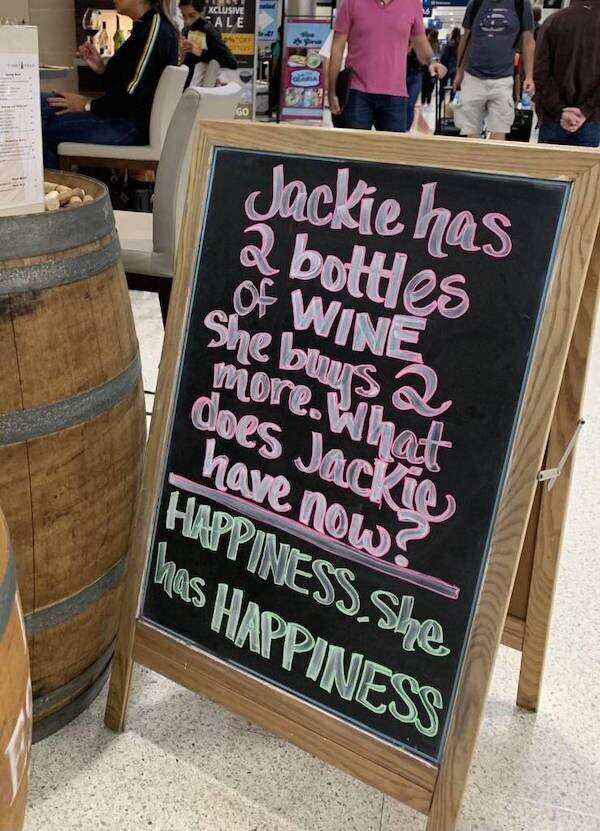 XCLUSIVE
SALE
GO
Jackie has
2 bottles
Of WINE
She buys 2
more. What
does Jackie
have now?
HAPPINESS. She
has HAPPINESS